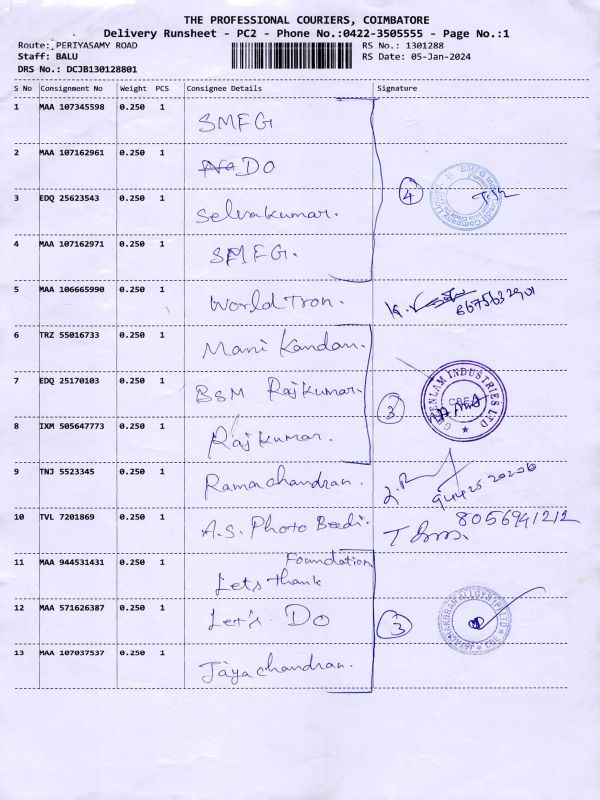 THE PROFESSIONAL COURIERS, COIMBATORE
Delivery Runsheet - PC2 - Phone No.:0422-3505555 - Page No.:1
Route: PERIYASAMY ROAD RS No.: 1301288
Staff: BALU RS Date: 05-Jan-2024
DRS No.: DCJB130128801
S No Consignment No Weight PCS Consignee Details Signature
1 MAA 107345598 0.250 1 SMFG
2 MAA 107162961 0.250 1 DO
3 EDQ 25623543 0.250 1 Selvakumar. 4
4 MAA 107162971 0.250 1 SMFG.
5 MAA 106665990 0.250 1 World Tron.
6 TRZ 55016733 0.250 1 Mani Kandan.
7 EDQ 25170103 0.250 1 BSM Rajkumar. 3 GREENLAM INDUSTRIES LTD
8 IXM 505647773 0.250 1 Rajkumar.
9 TNJ 5523345 0.250 1 Ramachandran.
10 TVL 7201869 0.250 1 A.S. Photo 8056941212
11 MAA 944531431 0.250 1 Foundation
Lets thank
12 MAA 571626387 0.250 1 Let's Do 3
13 MAA 107037537 0.250 1 Jayachandran.